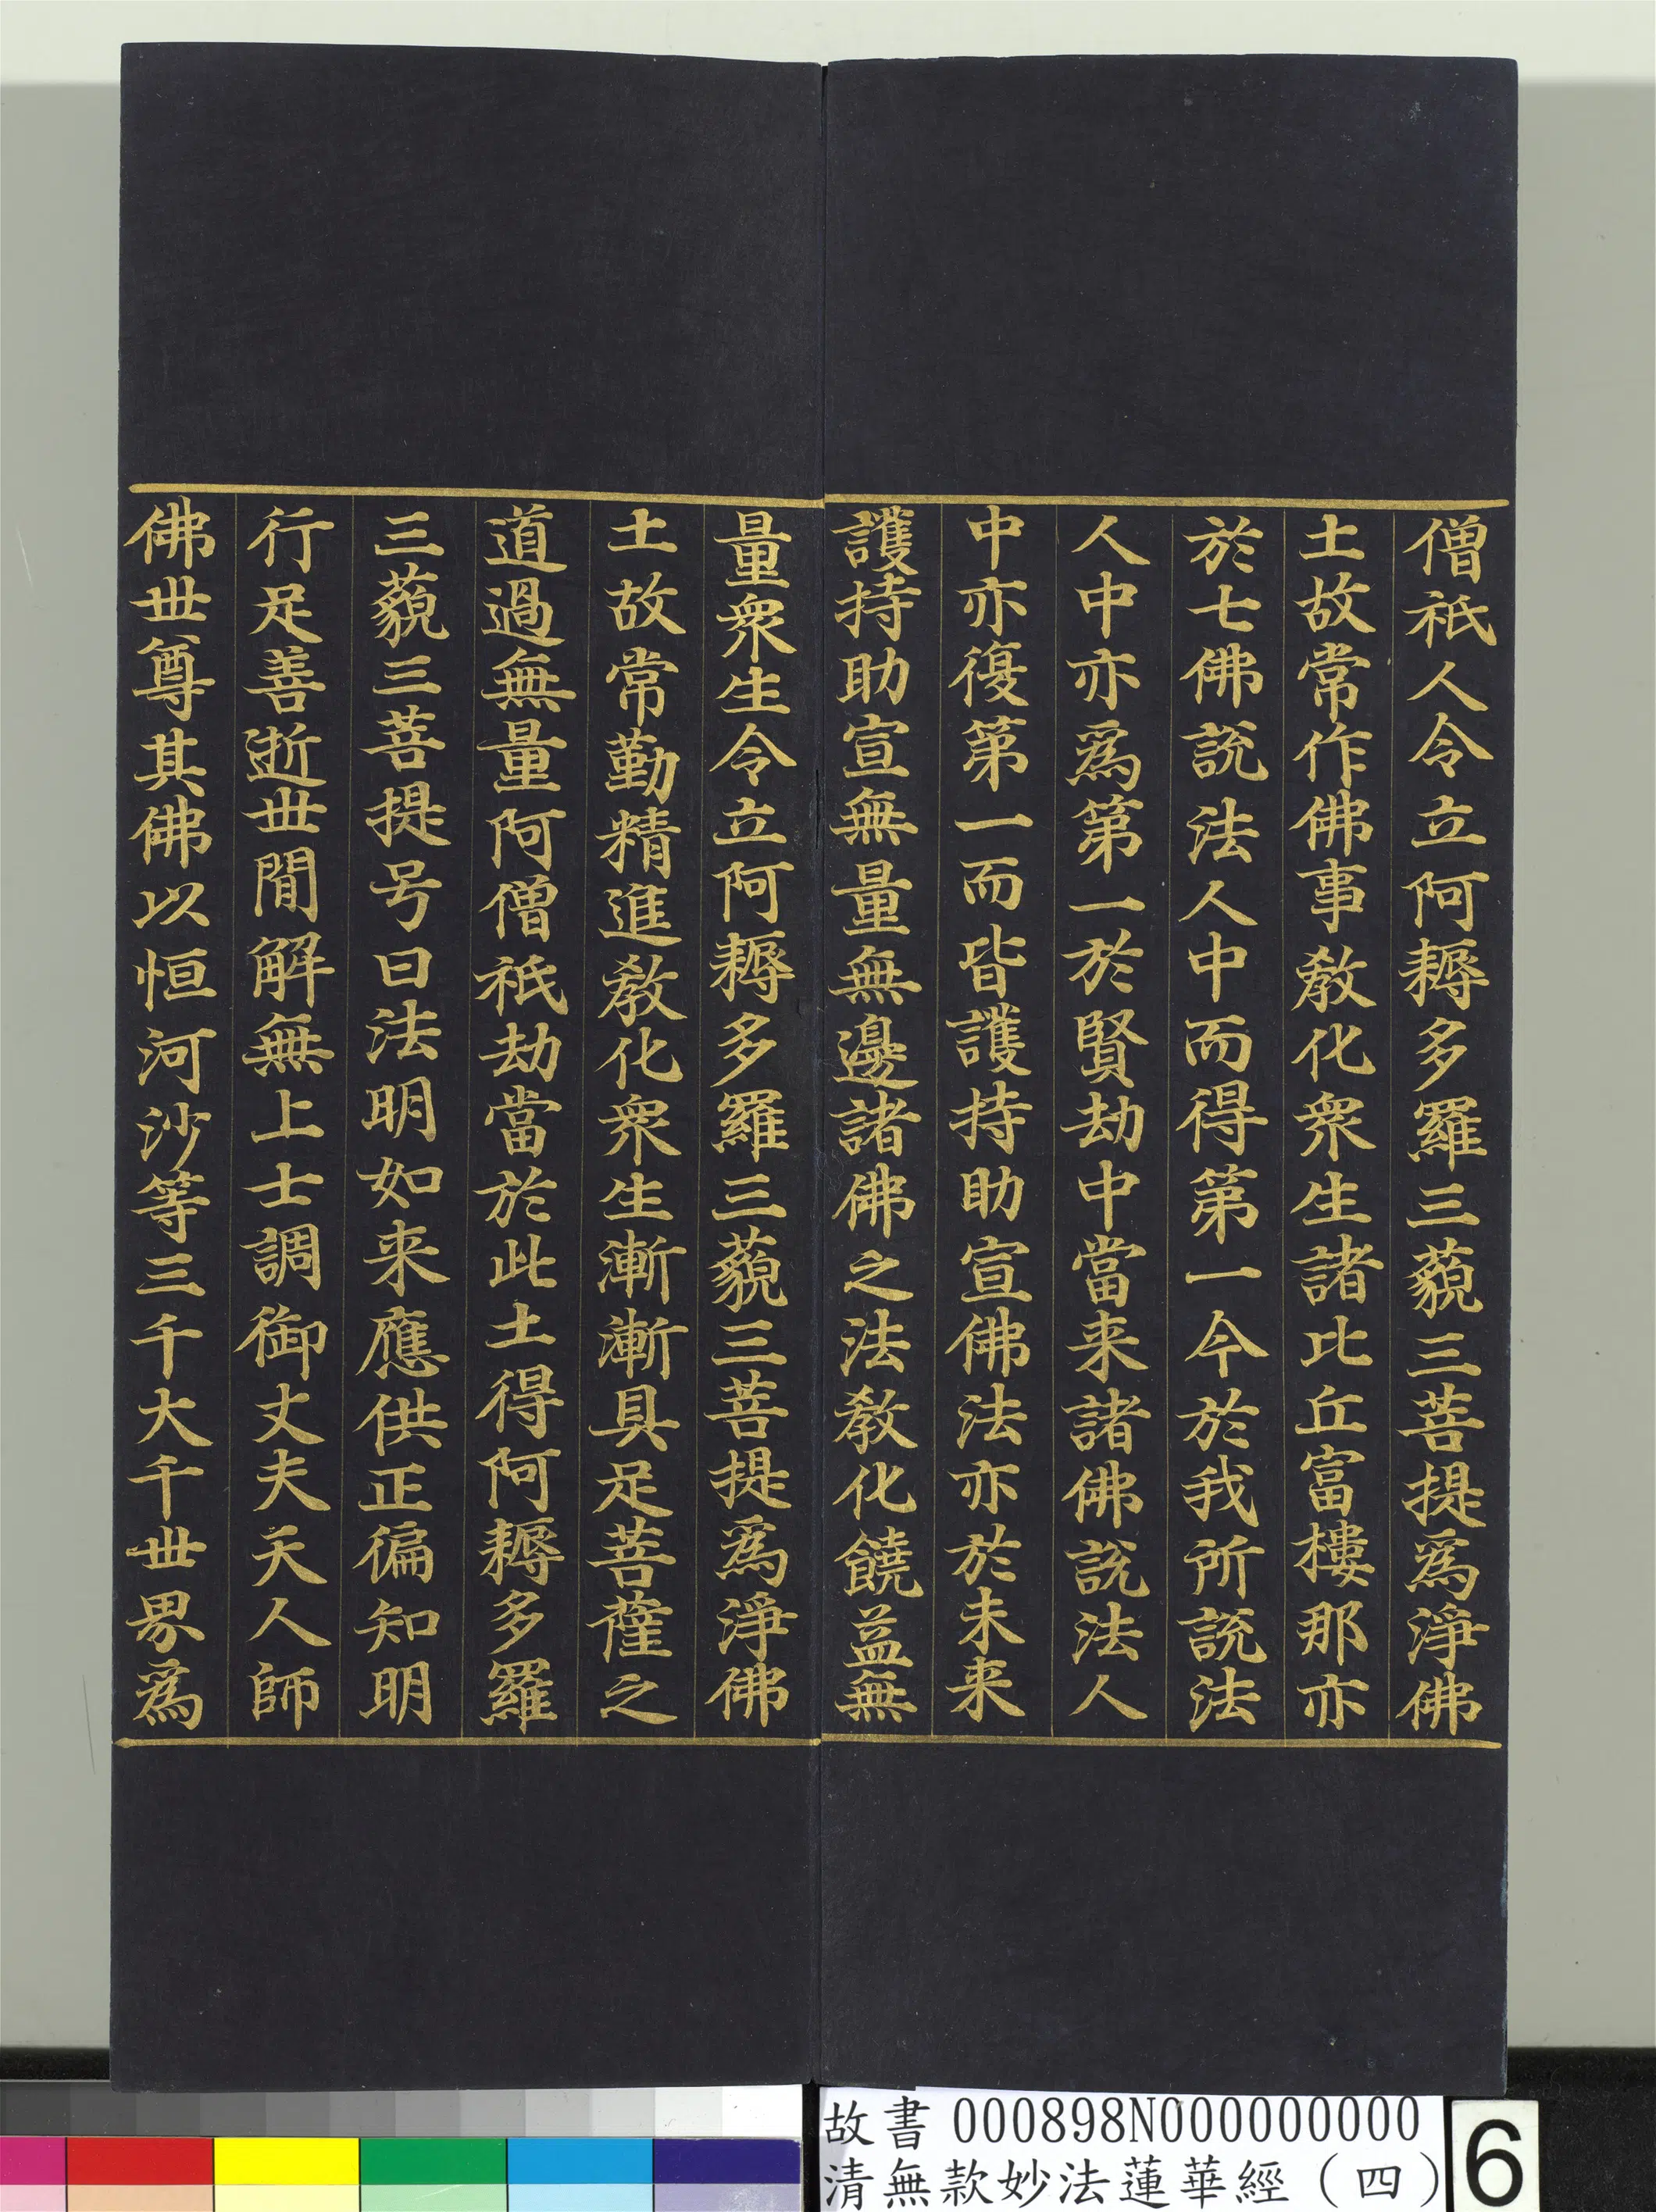 僧祇人令立阿耨多羅三藐三菩提為淨佛
土故常作佛事教化眾生諸比丘富樓那亦
於七佛說法人中而得第一今於我所說法
人中亦為第一於賢劫中當来諸佛說法人
中亦復第一而皆護持助宣佛法亦於未来
護持助宣無量無邊諸佛之法教化饒益無
量眾生令立阿耨多羅三藐三菩提為淨佛
土故常勤精進教化眾生漸漸具足菩薩之
道過無量阿僧祇劫當於此土得阿耨多羅
三藐三菩提号曰法明如来應供正徧知明
行足善逝世間解無上士調御丈夫天人師
佛世尊其佛以恒河沙等三千大千世界為
故書 000898N000000000
清無款妙法蓮華經（四）
6